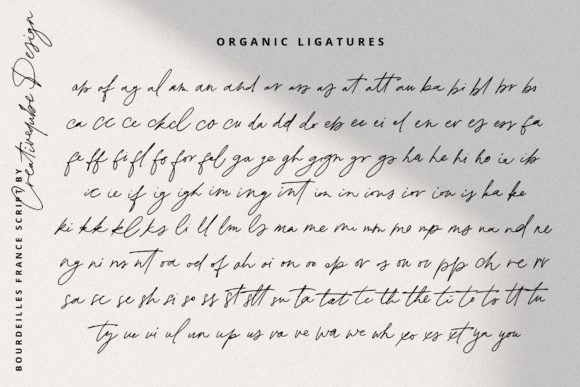 ORGANIC LIGATURES
ap af ag al am an and ar as as at att au ba bi bl br bs
ca cc ce ckcl co cu da dd do eb ee ei el en er es ess fa
fe ff fi fl fo for ful ga ge gh gign gr gs ha he hi ho ia ib
ic ie if ig igh im ing int ion in ions ior iou is ka ke
ki kk kl ks li ll lm ls ma me mi mm mo mp ms na nd ne
ng ni ns nt oa od of oh oi on oo op or os ou ov pp ch re rr
sa sc se sh si so ss st stt su ta tat te th the ti to ts tt tu
ty ue ui ul un up us va ve wa we wh xo xs xt ya you
BOURDEILLES FRANCE SCRIPT BY
Creativeqube Design